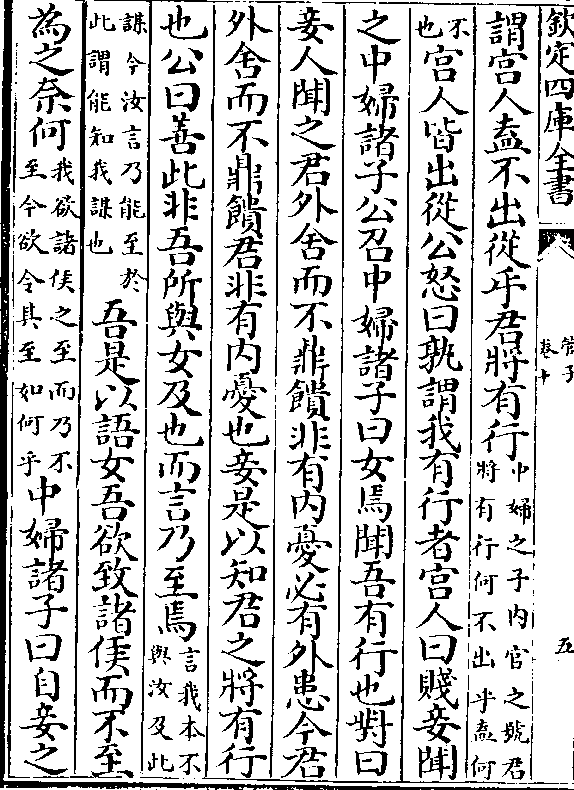 欽定四庫全書
管子
卷十
五
謂宫人盍不出從乎君將有行中婦之子内官之號君將有行何不出乎盍何
不也宫人皆出從公怒曰孰謂我有行者宫人曰賤妾聞
之中婦諸子公召中婦諸子曰女焉聞吾有行也對曰
妾人聞之君外舍而不鼎饋非有内憂必有外患今君
外舍而不鼎饋君非有内憂也妾是以知君之將有行
也公曰善此非吾所與女及也而言乃至焉言我本不與汝及此
謀今汝言乃能至於此謂能知我謀也吾是以語女吾欲致諸侯而不至
為之奈何我欲諸侯之至而乃不至今欲令其至如何乎中婦諸子曰自妾之